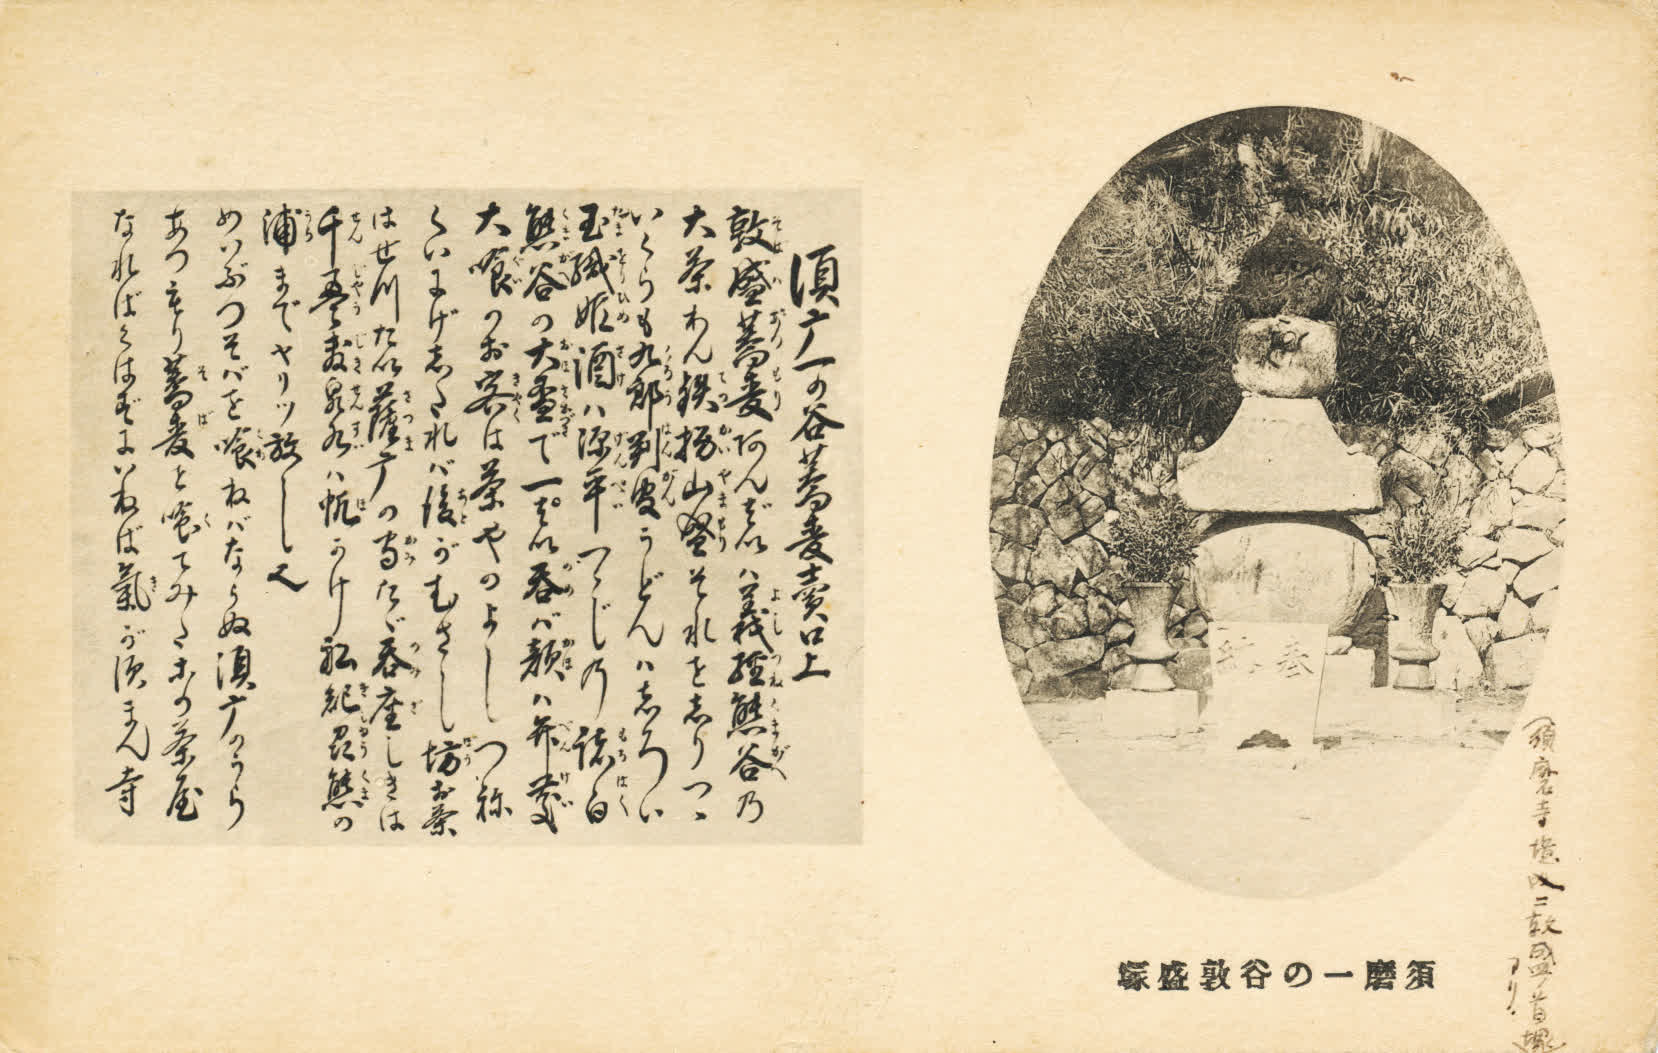 須广一の谷蕎麦賣口上
敦盛蕎麦あんばいハ義経熊谷乃
大茶わん鉄拐山盛それを志りつゝ
いくらも九郎判官うどんハ志ろい
玉織姫酒ハ源平つゝじ乃諸白
熊谷の大盃で一ぱい呑バ顔ハ弁慶
大喰のお客は茶やのよしつ祢
くいにげ志たれバ後がむさし坊お茶
はせ川たい薩广の守たゞ呑座しきは
千畳敷泉水ハ帆かけ船 熊の
浦まで 放し又
めいぶつそバを喰ねバならぬ須广のうら
あつもり蕎麦を喰てみたまの茶屋
なればくはずにいねば氣が須まん寺
須磨一の谷敦盛塚
須磨寺境内ニ敦盛首塚
アリ